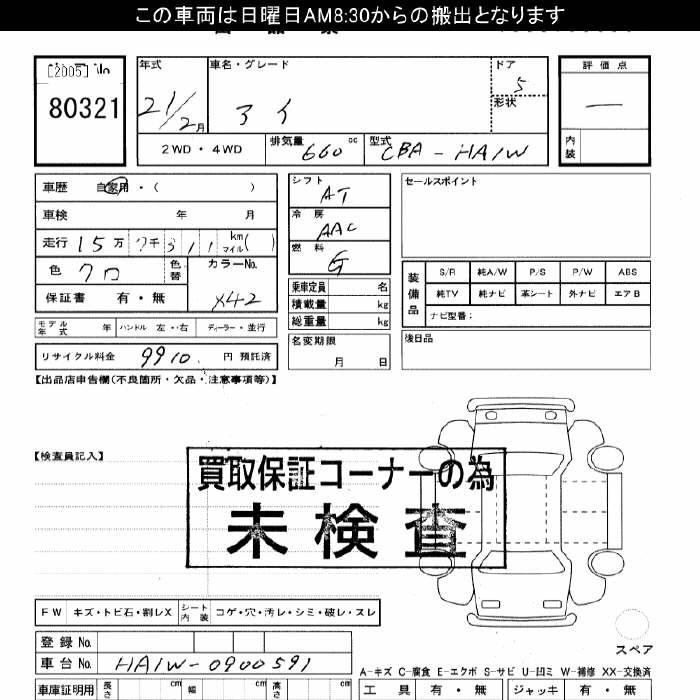 この車両は日曜日AM8:30からの搬出となります
[2005] No
80321
年式
21/2月
車名・グレード
アイ
ドア
5
形状
評価点
―
内装
2WD・4WD
排気量
660 cc
型式
CBA-HA1W
車歴 自家用・( )
車検 年 月
走行 15万7千311 km マイル( )
色 クロ
色替
カラーNo.
X42
保証書 有・無
モデル年式 年
ハンドル 左・右
ディーラー・並行
リサイクル料金 9910 円 預託済
シフト
AT
冷房
AAC
燃料
G
乗車定員 名
積載量 kg
総重量 kg
名変期限
月 日
セールスポイント
装備品
S/R 純A/W P/S P/W ABS
純TV 純ナビ 革シート 外ナビ エアB
ナビ型番:
後日品
【出品店申告欄(不良箇所・欠品・注意事項等)】
【検査員記入】
買取保証コーナーの為
未検査
FW キズ・トビ石・割レX
シート内装 コゲ・穴・汚レ・シミ・破レ・スレ
登録No.
車台No. HA1W-0900591
スペア
A-キズ C-腐食 E-エクボ S-サビ U-凹ミ W-補修 XX-交換済
車庫証明用 長さ cm 幅 cm 高さ cm
工具 有・無 ジャッキ 有・無